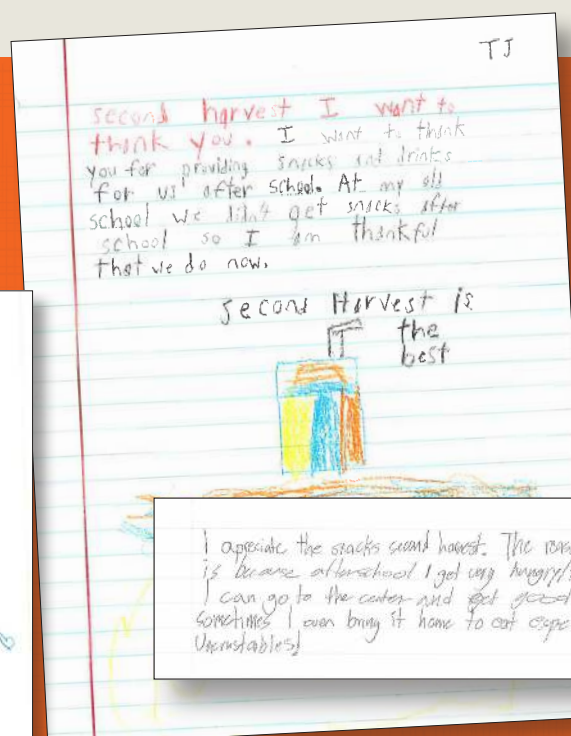 TJ
second harvest I want to
thank you. I want to thank
you for providing snacks and drinks
for us after school. At my old
school we didn't get snacks after
school so I am thankful
that we do now.
second Harvest is
the
best
I appreciate the snacks second harvest. The
is because afterschool I get very
I can go to the center and get
sometimes I even bring it home to eat
Uncrustables!